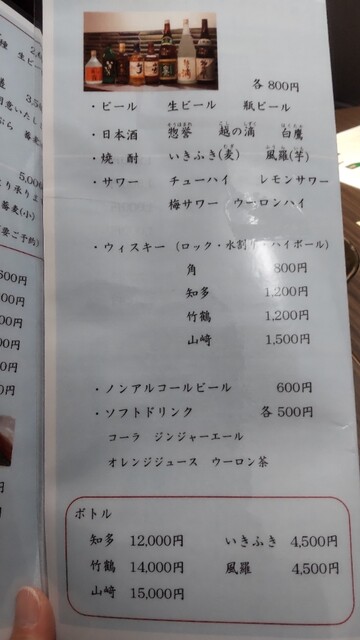 各800円
・ビール 生ビール 瓶ビール
・日本酒 惣誉 越の滴 白鷹
・焼酎 いきふき(麦) 風羅(芋)
・サワー チューハイ レモンサワー
梅サワー ウーロンハイ
・ウィスキー (ロック・水割り・ハイボール)
角 800円
知多 1,200円
竹鶴 1,200円
山崎 1,500円
・ノンアルコールビール 600円
・ソフトドリンク 各500円
コーラ ジンジャーエール
オレンジジュース ウーロン茶
ボトル
知多 12,000円 いきふき 4,500円
竹鶴 14,000円 風羅 4,500円
山崎 15,000円